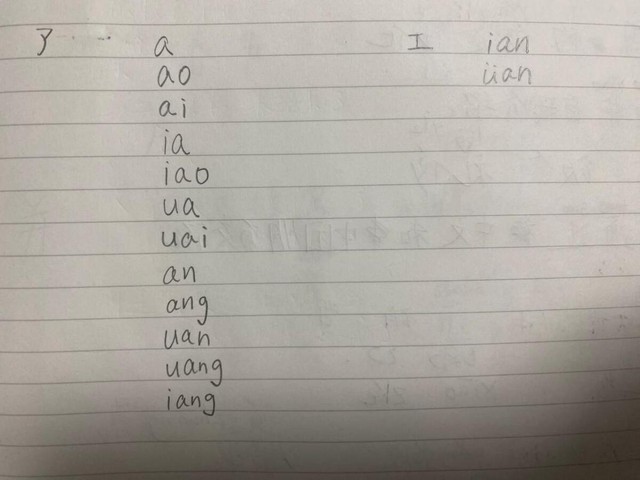 ア… a
ao
ai
ia
iao
ua
uai
an
ang
uan
uang
iang
エ ian
üan